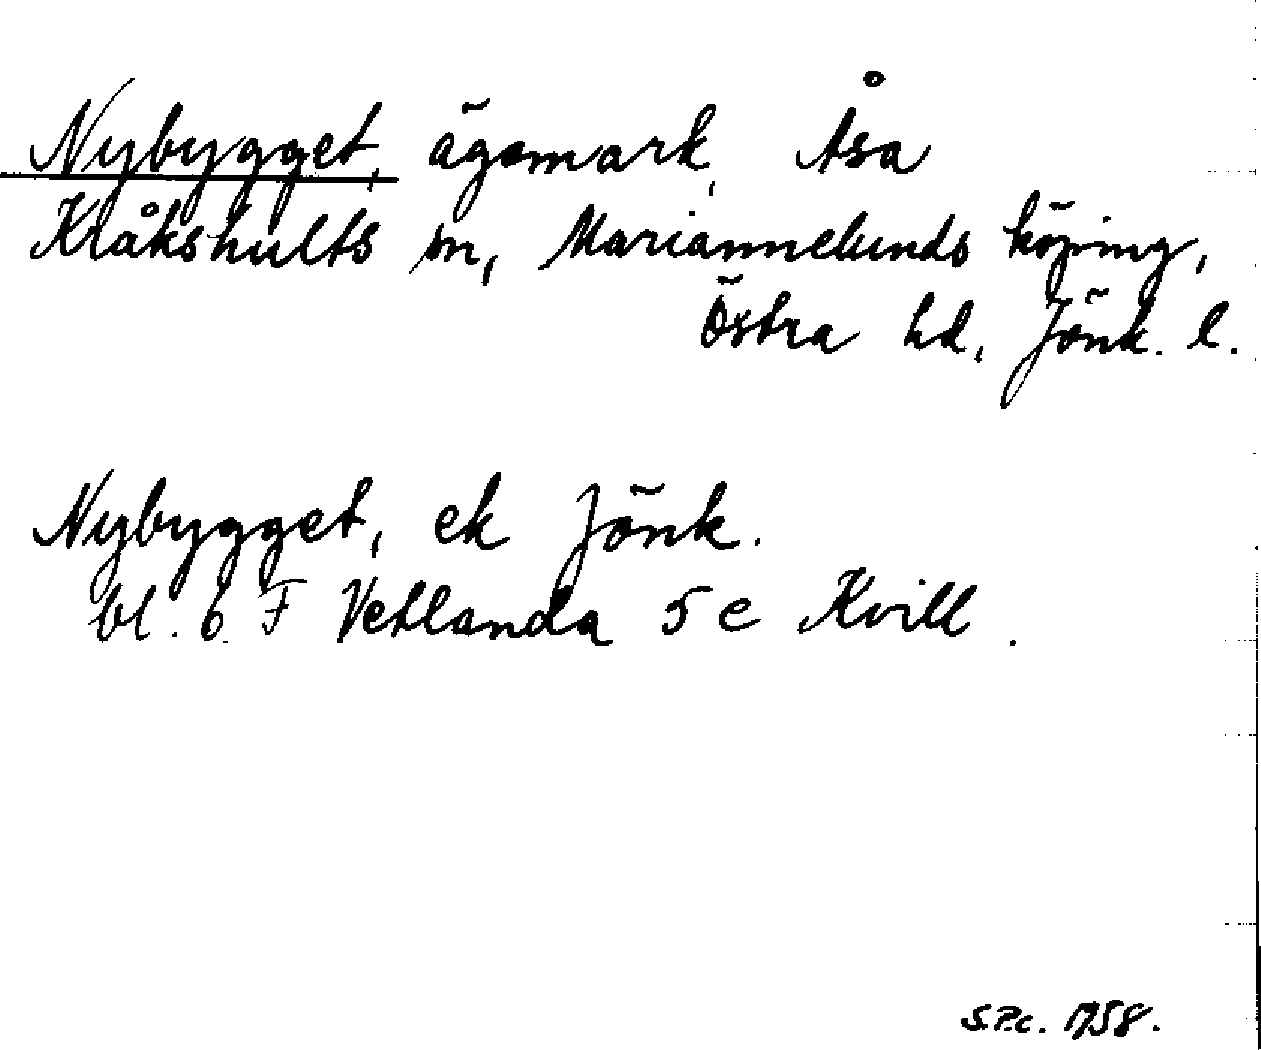 Nybygget, ägomark, Åsa
Kråkshults sn, Mariannelunds köping,
Östra hd, Jönk. l.
Nybygget, ek Jönk.
bl. 6 F Vetlanda 5 e Kvill.
S.P.c. 1758.